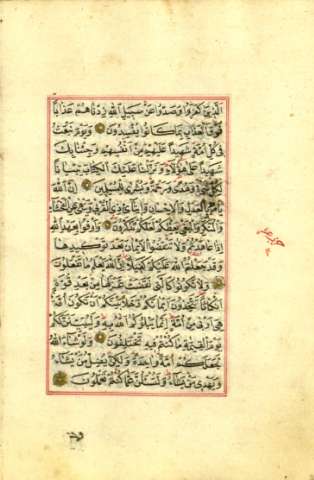 الَّذِينَ كَفَرُوا وَصَدُّوا عَنْ سَبِيلِ اللهِ زِدْنَاهُمْ عَذَابًا
فَوْقَ الْعَذَابِ بِمَا كَانُوا يُفْسِدُونَ وَيَوْمَ نَبْعَثُ
فِي كُلِّ اُمَّةٍ شَهِيدًا عَلَيْهِمْ مِنْ اَنْفُسِهِمْ وَجِئْنَا بِكَ
شَهِيدًا عَلَى هَؤُلَاءِ وَنَزَّلْنَا عَلَيْكَ الْكِتَابَ تِبْيَانًا
لِكُلِّ شَيْءٍ وَهُدًى وَرَحْمَةً وَبُشْرَى لِلْمُسْلِمِينَ اِنَّ اللهَ
يَأْمُرُ بِالْعَدْلِ وَالْاِحْسَانِ وَاِيتَاءِ ذِي الْقُرْبَى وَيَنْهَى عَنِ الْفَحْشَاءِ
وَالْمُنْكَرِ وَالْبَغْيِ يَعِظُكُمْ لَعَلَّكُمْ تَذَكَّرُونَ وَاَوْفُوا بِعَهْدِ اللهِ
اِذَا عَاهَدْتُمْ وَلَا تَنْقُضُوا الْاَيْمَانَ بَعْدَ تَوْكِيدِهَا
وَقَدْ جَعَلْتُمُ اللهَ عَلَيْكُمْ كَفِيلًا اِنَّ اللهَ يَعْلَمُ مَا تَفْعَلُونَ
وَلَا تَكُونُوا كَالَّتِي نَقَضَتْ غَزْلَهَا مِنْ بَعْدِ قُوَّةٍ
اَنْكَاثًا تَتَّخِذُونَ اَيْمَانَكُمْ دَخَلًا بَيْنَكُمْ اَنْ تَكُونَ اُمَّةٌ
هِيَ اَرْبَى مِنْ اُمَّةٍ اِنَّمَا يَبْلُوكُمُ اللهُ بِهِ وَلَيُبَيِّنَنَّ لَكُمْ
يَوْمَ الْقِيمَةِ مَا كُنْتُمْ فِيهِ تَخْتَلِفُونَ وَلَوْ شَاءَ اللهُ
لَجَعَلَكُمْ اُمَّةً وَاحِدَةً وَلَكِنْ يُضِلُّ مَنْ يَشَاءُ
وَيَهْدِي مَنْ يَشَاءُ وَلَتُسْئَلُنَّ عَمَّا كُنْتُمْ تَعْمَلُونَ